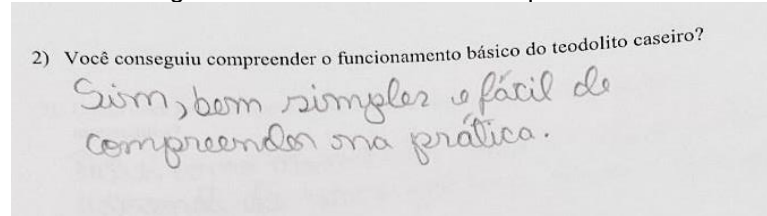 2) Você conseguiu compreender o funcionamento básico do teodolito caseiro?
Sim, bem simples e fácil de
compreender na prática.